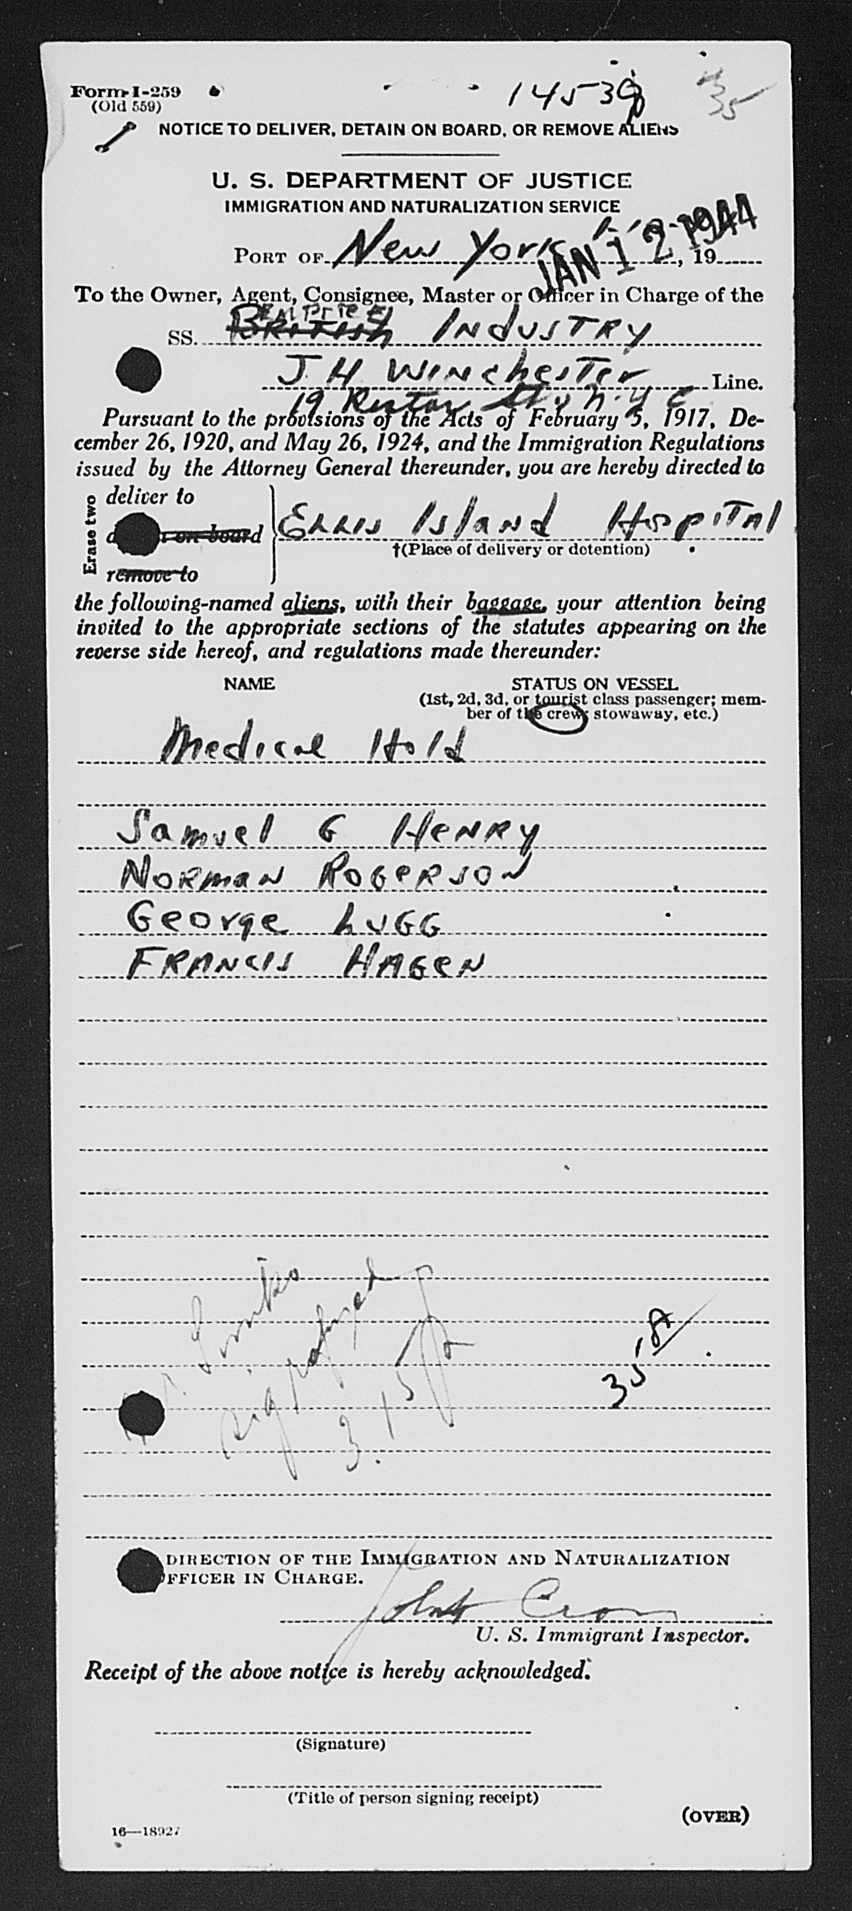 Form I-259
(Old 559)
1453
35
NOTICE TO DELIVER, DETAIN ON BOARD, OR REMOVE ALIENS
U. S. DEPARTMENT OF JUSTICE
IMMIGRATION AND NATURALIZATION SERVICE
PORT OF New York JAN 12 1944, 19
To the Owner, Agent, Consignee, Master or Officer in Charge of the
EMPIRE
SS. BRITISH INDUSTRY
J. H. WINchesTer Line.
19 Rector St N.Y.C
Pursuant to the provisions of the Acts of February 5, 1917, De-
cember 26, 1920, and May 26, 1924, and the Immigration Regulations
issued by the Attorney General thereunder, you are hereby directed to
Erase two
deliver to
on board
remove to
ELLIS Island HospiTAl
†(Place of delivery or detention)
the following-named aliens, with their baggage, your attention being
invited to the appropriate sections of the statutes appearing on the
reverse side hereof, and regulations made thereunder:
NAME
STATUS ON VESSEL
(1st, 2d, 3d, or tourist class passenger; mem-
ber of the crew; stowaway, etc.)
Medical Hold
Samuel G HENRY
NORMAN ROGERSON
George LUGG
FRANCIS HAGEN
sig refused
3.15 P
35
DIRECTION OF THE IMMIGRATION AND NATURALIZATION
OFFICER IN CHARGE.
U. S. Immigrant Inspector.
Receipt of the above notice is hereby acknowledged.
(Signature)
(Title of person signing receipt)
(OVER)
16—18927